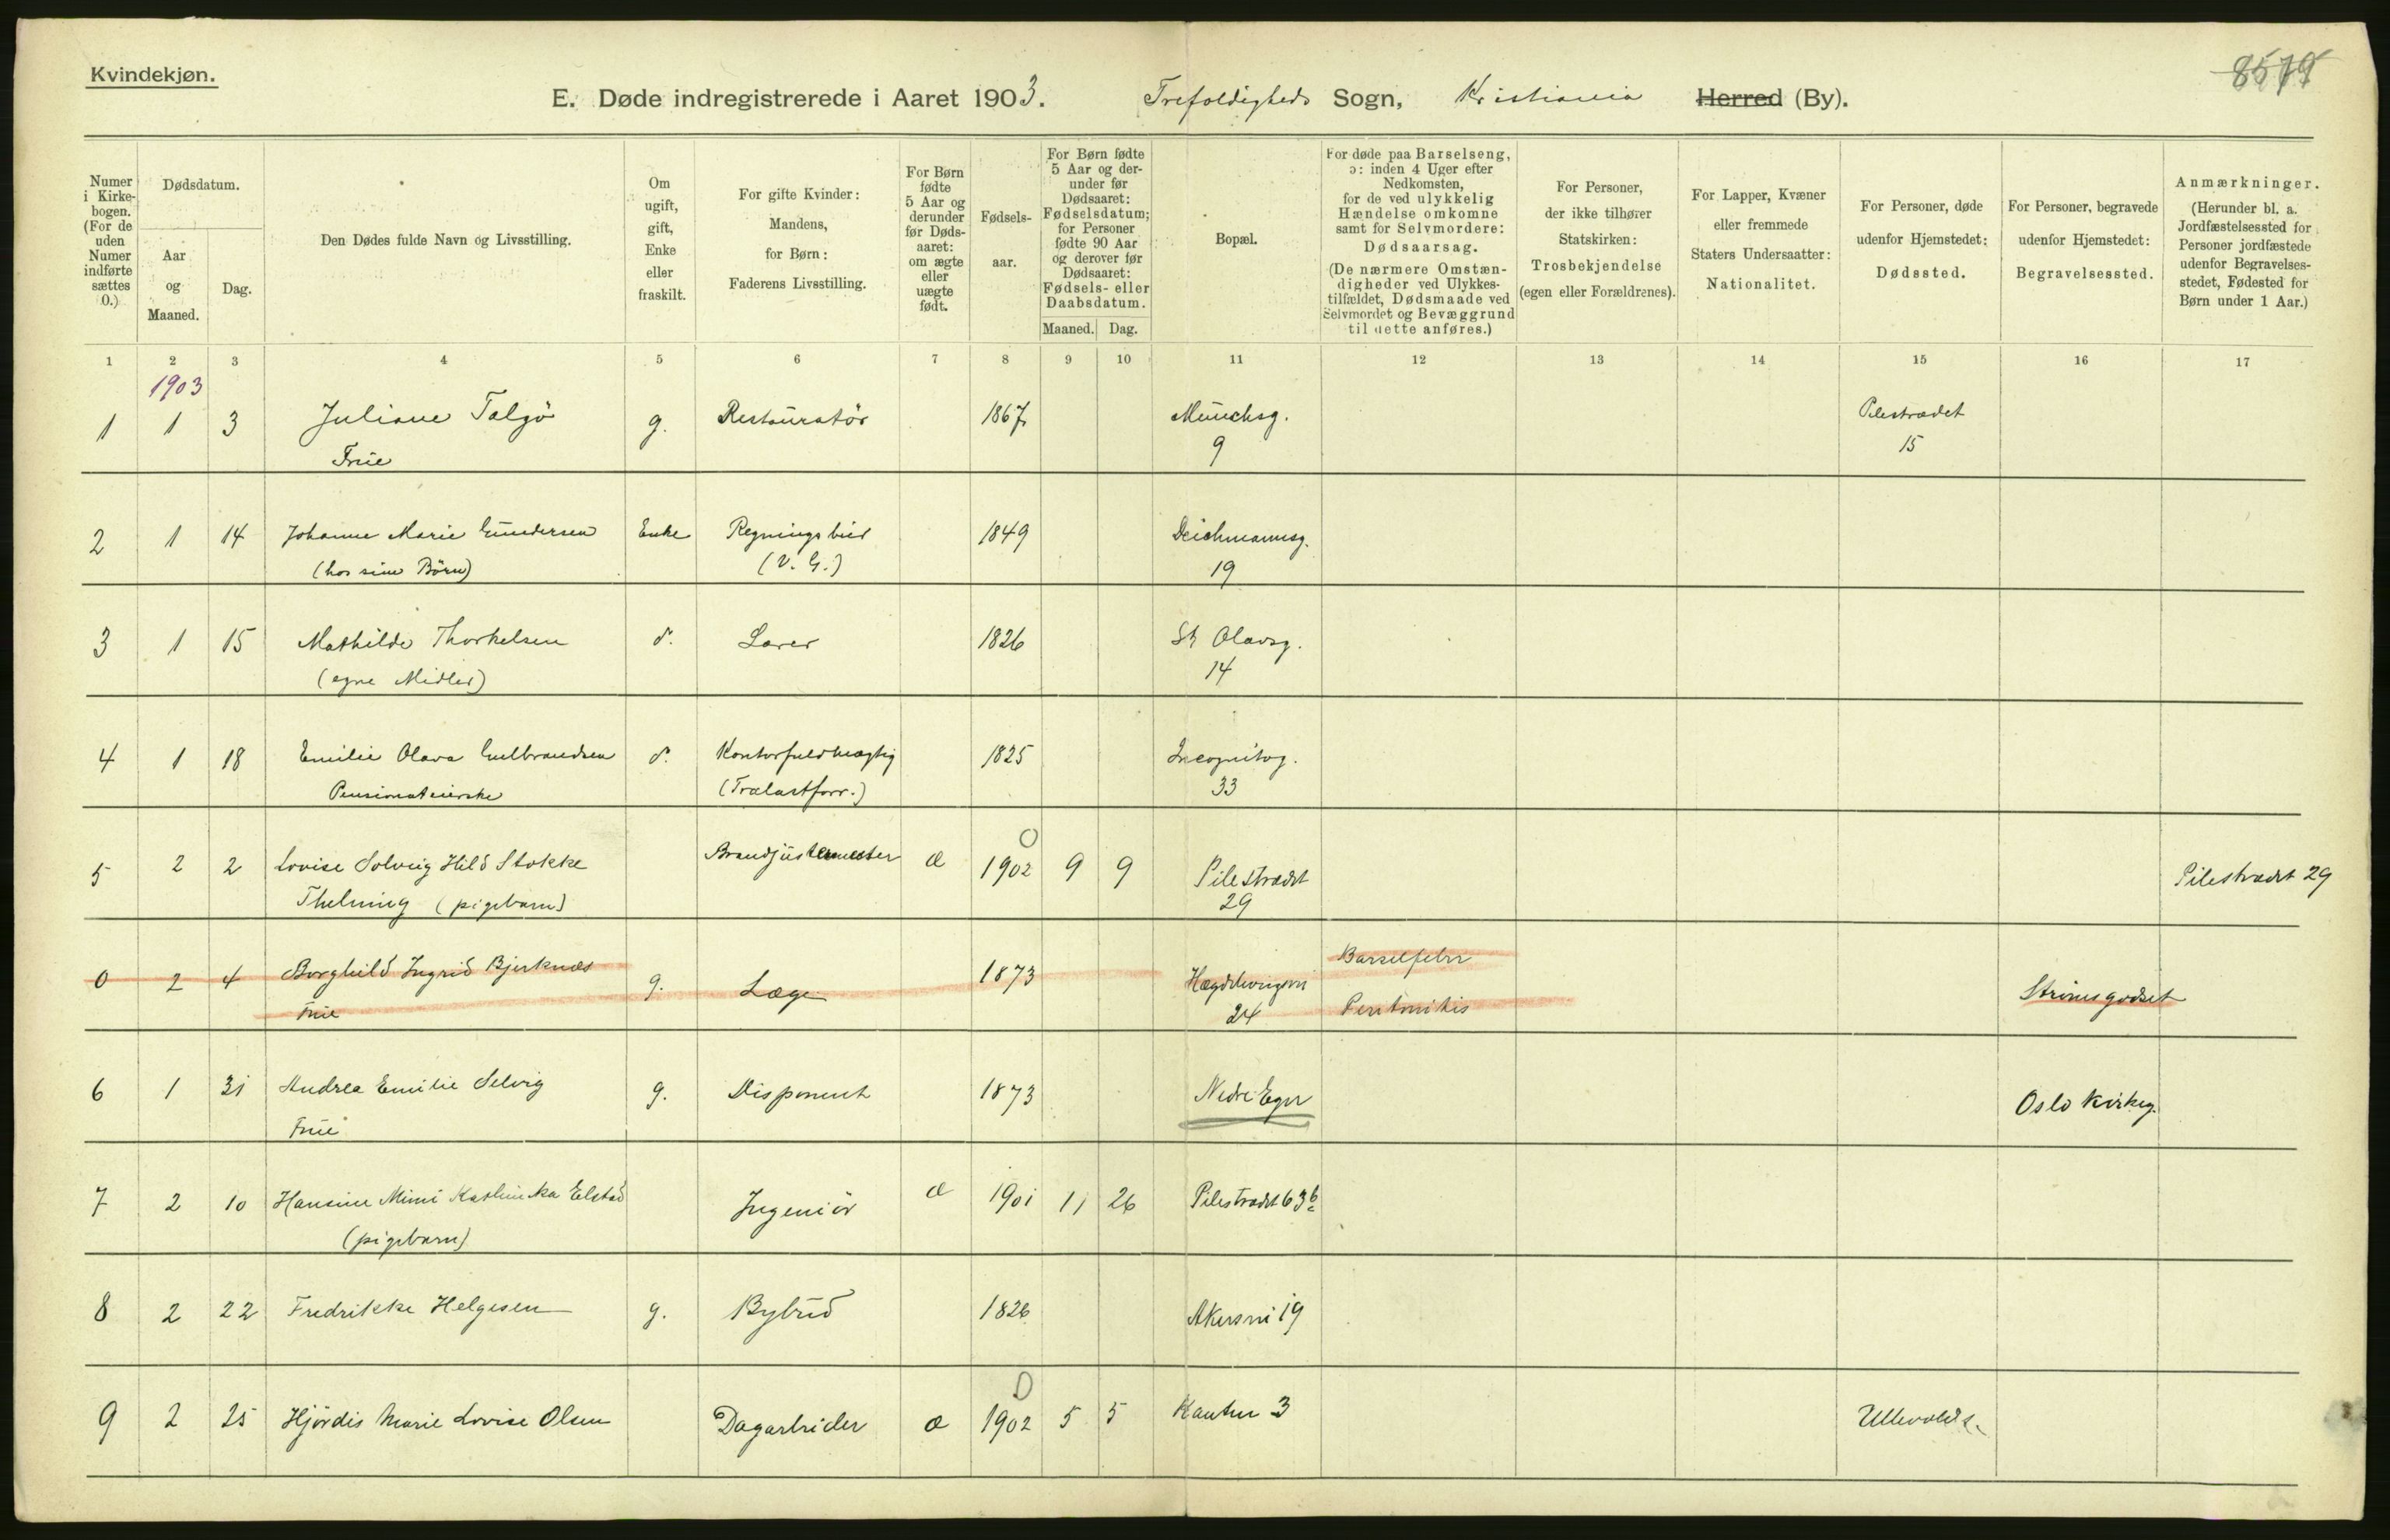 Kvindekjøn.
8579
E. Døde indregistrerede i Aaret 1903. Trefoldigheds Sogn, Kristiania Herred (By).
Numer i Kirkebogen. (For de uden Numer indførte sættes 0.)
Dødsdatum.
Aar og Maaned.
Dag.
Den Dødes fulde Navn og Livsstilling.
Om ugift, gift, Enke eller fraskilt.
For gifte Kvinder: Mandens, for Børn: Faderens Livsstilling.
For Børn fødte 5 Aar og derunder før Dødsaaret: om ægte eller uægte født.
Fødselsaar.
For Børn fødte 5 Aar og derunder før Dødsaaret: Fødselsdatum; for Personer fødte 90 Aar og derover før Dødsaaret: Fødsels- eller Daabsdatum.
Maaned. Dag.
Bopæl.
For døde paa Barselseng, ɔ: inden 4 Uger efter Nedkomsten, for de ved ulykkelig Hændelse omkomne samt for Selvmordere: Dødsaarsag. (De nærmere Omstændigheder ved Ulykkestilfældet, Dødsmaade ved Selvmordet og Bevæggrund til dette anføres.)
For Personer, der ikke tilhører Statskirken: Trosbekjendelse (egen eller Forældrenes).
For Lapper, Kvæner eller fremmede Staters Undersaatter: Nationalitet.
For Personer, døde udenfor Hjemstedet: Dødssted.
For Personer, begravede udenfor Hjemstedet: Begravelsessted.
Anmærkninger. (Herunder bl. a. Jordfæstelsessted for Personer jordfæstede udenfor Begravelsesstedet, Fødested for Børn under 1 Aar.)
1 2 3 4 5 6 7 8 9 10 11 12 13 14 15 16 17
1903
1 1 3 Juliane Talgö g. Restauratör 1867 Munchsg. Pilestrædet
Frue 9 15
2 1 14 Johanne Marie Gundersen Enke Regningsbud 1849 Deichmannsg.
(hos sine Börn) (V. G.) 19
3 1 15 Mathilde Thorkelsen d. Lærer 1826 St Olavsg.
(egne Midler) 14
4 1 18 Emilie Olava Gulbrandsen d. Kontorfuldmægtig 1825 Incognitog.
Pensionateierske (Trælastforr.) 33
5 2 2 Lovise Solveig Hild Stokke æ 1902 9 9 Pilestrædet Pilestrædet 29
Thelning (pigebarn) 29
0 2 4 Borghild Ingrid Bjerknæs g. Læge 1873 Hægdehaugsvei Barselfeber Strömsgodset
Frue 24 Peritonitis
6 1 31 Andrea Emilie Selvig g. Disponent 1873 Nedre Eger Oslo Kirkeg.
Frue
7 2 10 Hansine Mimi Kathinka Elstad Ingeniör æ 1901 11 26 Pilestrædet 63b
(pigebarn)
8 2 22 Fredrikke Helgesen g. Bybud 1826 Akersvei 19
9 2 25 Hjördis Marie Lovise Olsen Dagarbeider æ 1902 5 5 3 Ullevolds.